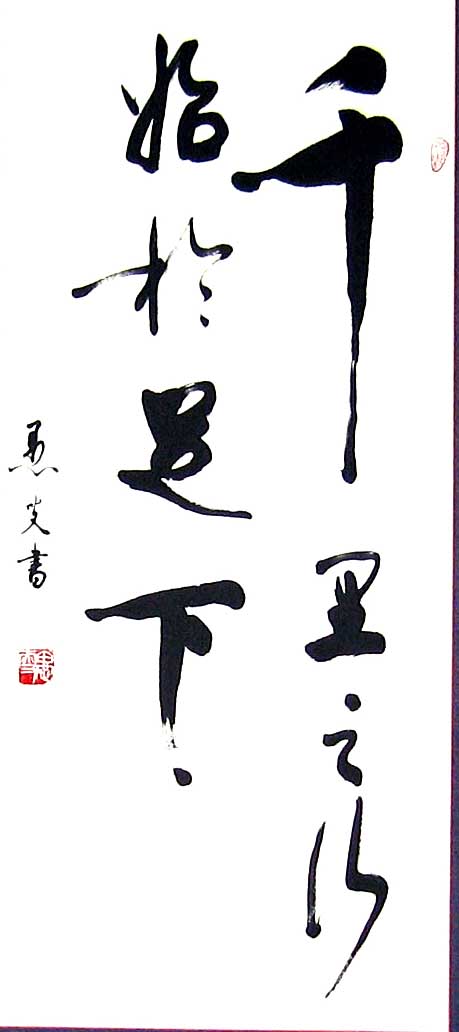 千里之行
始於足下
愚叟書